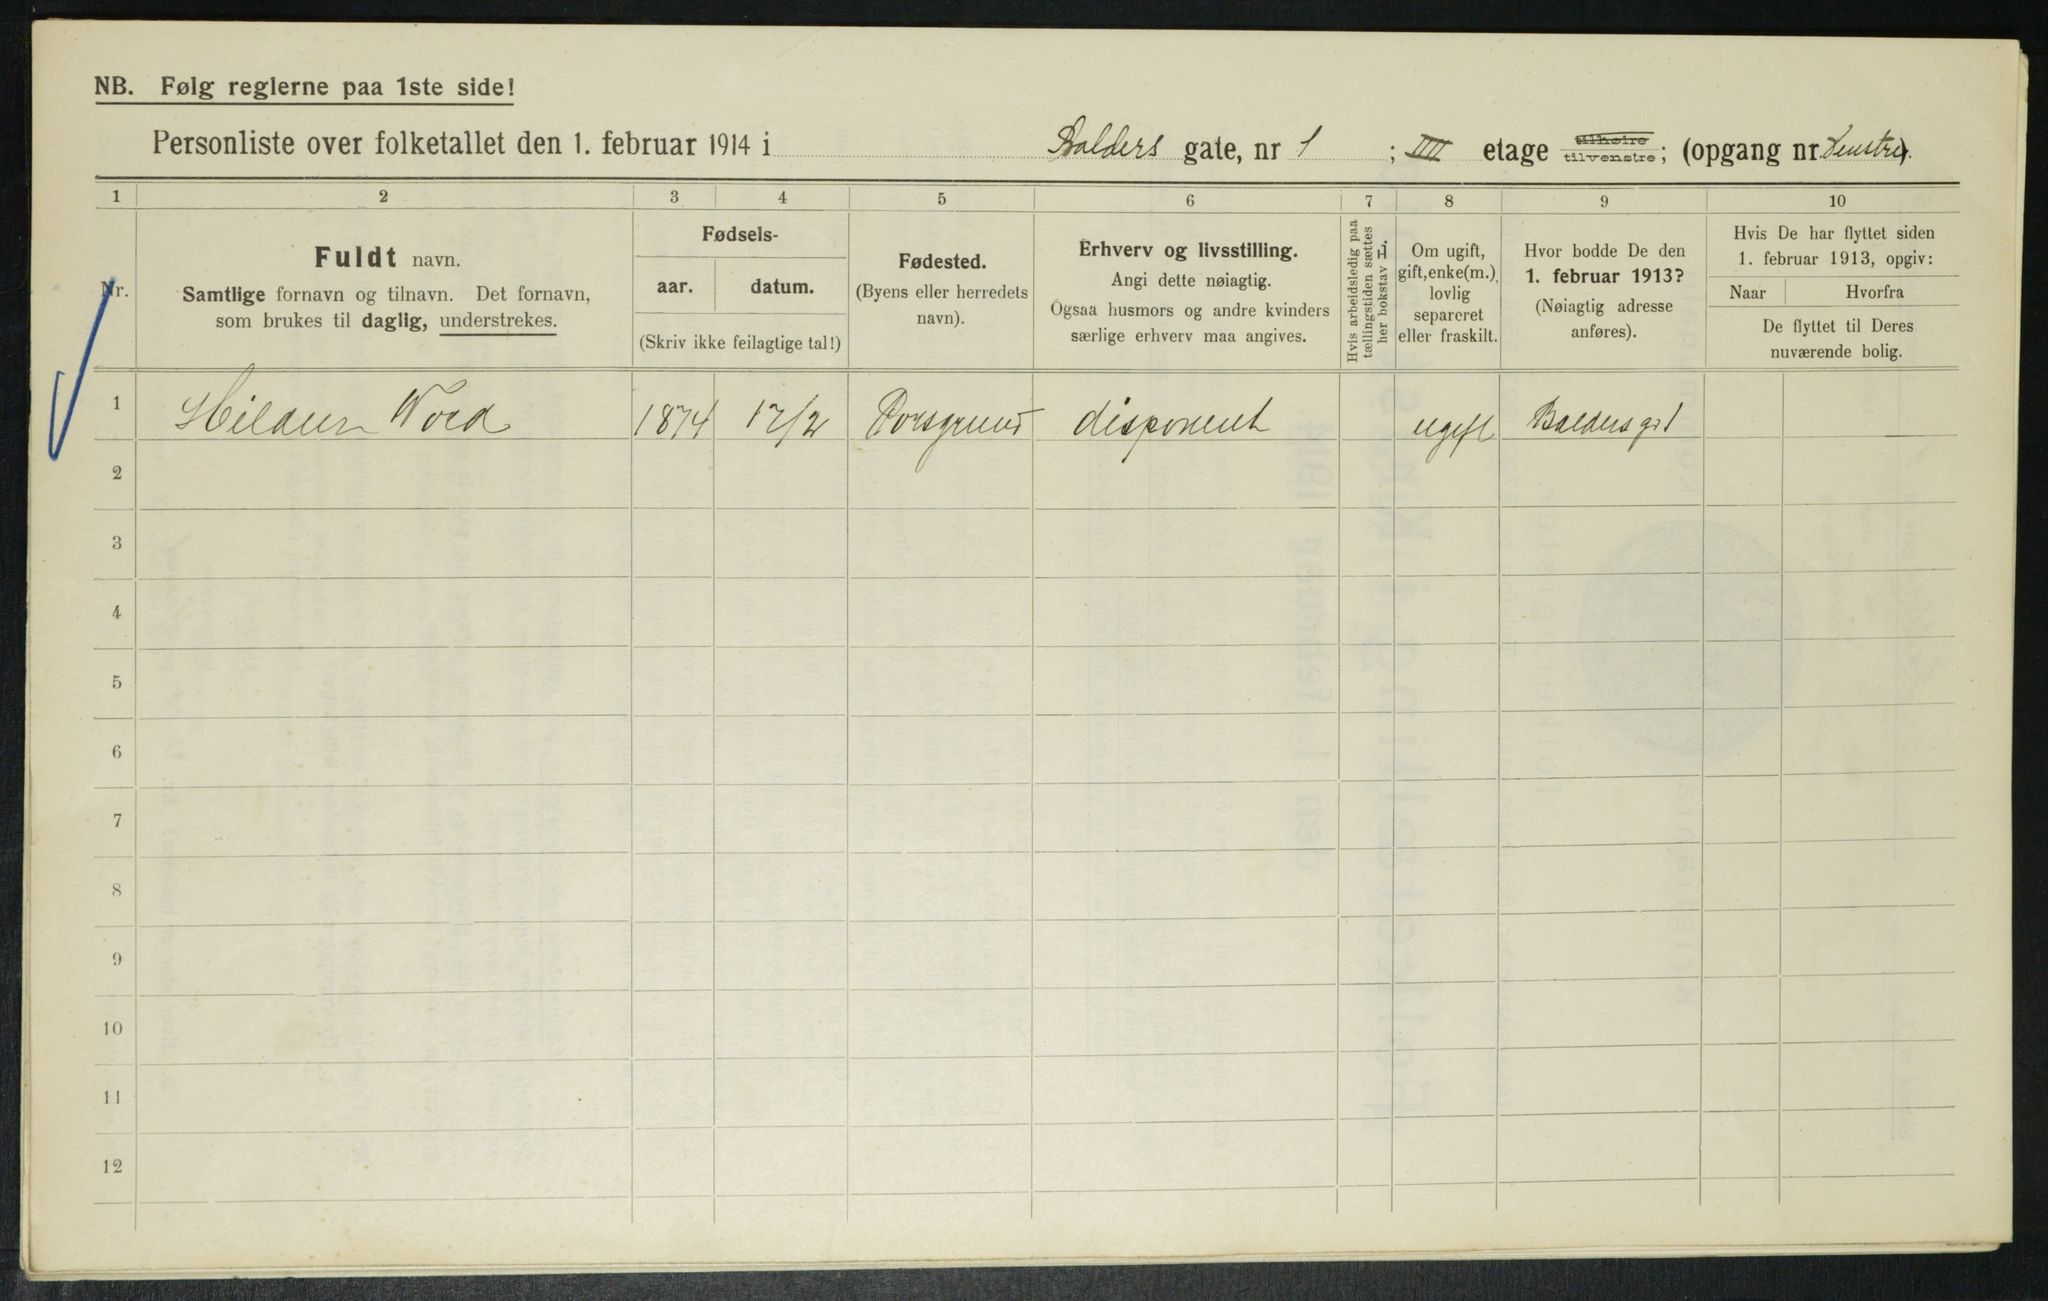 NB. Følg reglerne paa 1ste side!
Personliste over folketallet den 1. februar 1914 i Balders gate, nr 1 ; IIII etage tilhøire tilvenstre; (opgang nr. Venstre).
1 2 3 4 5 6 7 8 9 10
Nr.
Fuldt navn.
Samtlige fornavn og tilnavn. Det fornavn,
som brukes til daglig, understrekes.
Fødsels-
aar. datum.
(Skriv ikke feilagtige tal!)
Fødested.
(Byens eller herredets
navn).
Erhverv og livsstilling.
Angi dette nøiagtig.
Ogsaa husmors og andre kvinders
særlige erhverv maa angives.
Hvis arbeidsledig paa
tællingstiden sættes
her bokstav L.
Om ugift,
gift, enke(m.),
lovlig
separeret
eller fraskilt.
Hvor bodde De den
1. februar 1913?
(Nøiagtig adresse
anføres).
Hvis De har flyttet siden
1. februar 1913, opgiv:
Naar Hvorfra
De flyttet til Deres
nuværende bolig.
1 1874 17/2 Porsgrund disponent ugift Baldersgt 1
2
3
4
5
6
7
8
9
10
11
12